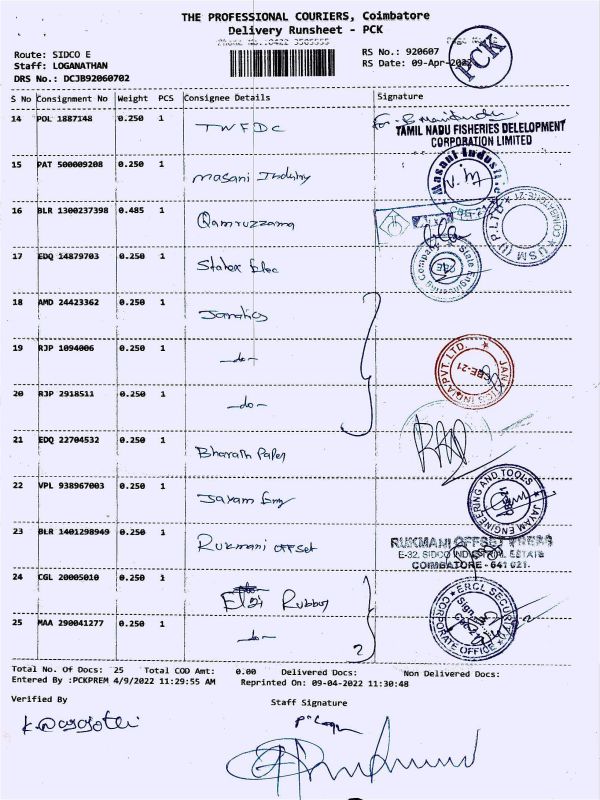 THE PROFESSIONAL COURIERS, Coimbatore
Delivery Runsheet - PCK
Phone No.:0422 3505555
Route: SIDCO E
RS No.: 920607
Staff: LOGANATHAN
RS Date: 09-Apr-2022
DRS No.: DCJB92060702
PCK
S No Consignment No Weight PCS Consignee Details Signature
14 POL 1887148 0.250 1 TWFDC
TAMIL NADU FISHERIES DELELOPMENT
CORPORATION LIMITED
15 PAT 500009208 0.250 1 Masani Industry
Masani Industri
16 BLR 1300237398 0.485 1 Qamruzzama
17 EDQ 14879703 0.250 1 Statex Elec
18 AMD 24423362 0.250 1 Janatics
19 RJP 1094006 0.250 1 -do-
CBE-21
20 RJP 2918511 0.250 1 -do-
21 EDQ 22704532 0.250 1 Bharath Paper
22 VPL 938967003 0.250 1 Jayam Eng
JAYAM ENGINEERING AND TOOLS
23 BLR 1401298949 0.250 1 Rukmani offset
RUKMANI OFFSET PRESS
E-32, SIDCO INDUSTRIAL ESTATE
COIMBATORE - 641 021.
24 CGL 20005010 0.250 1 Elgi Rubber
ERCL SECURITY
CORPORATE OFFICE
25 MAA 290041277 0.250 1 -do-
Total No. Of Docs: 25 Total COD Amt: 0.00 Delivered Docs: Non Delivered Docs:
Entered By :PCKPREM 4/9/2022 11:29:55 AM Reprinted On: 09-04-2022 11:30:48
Verified By
Staff Signature